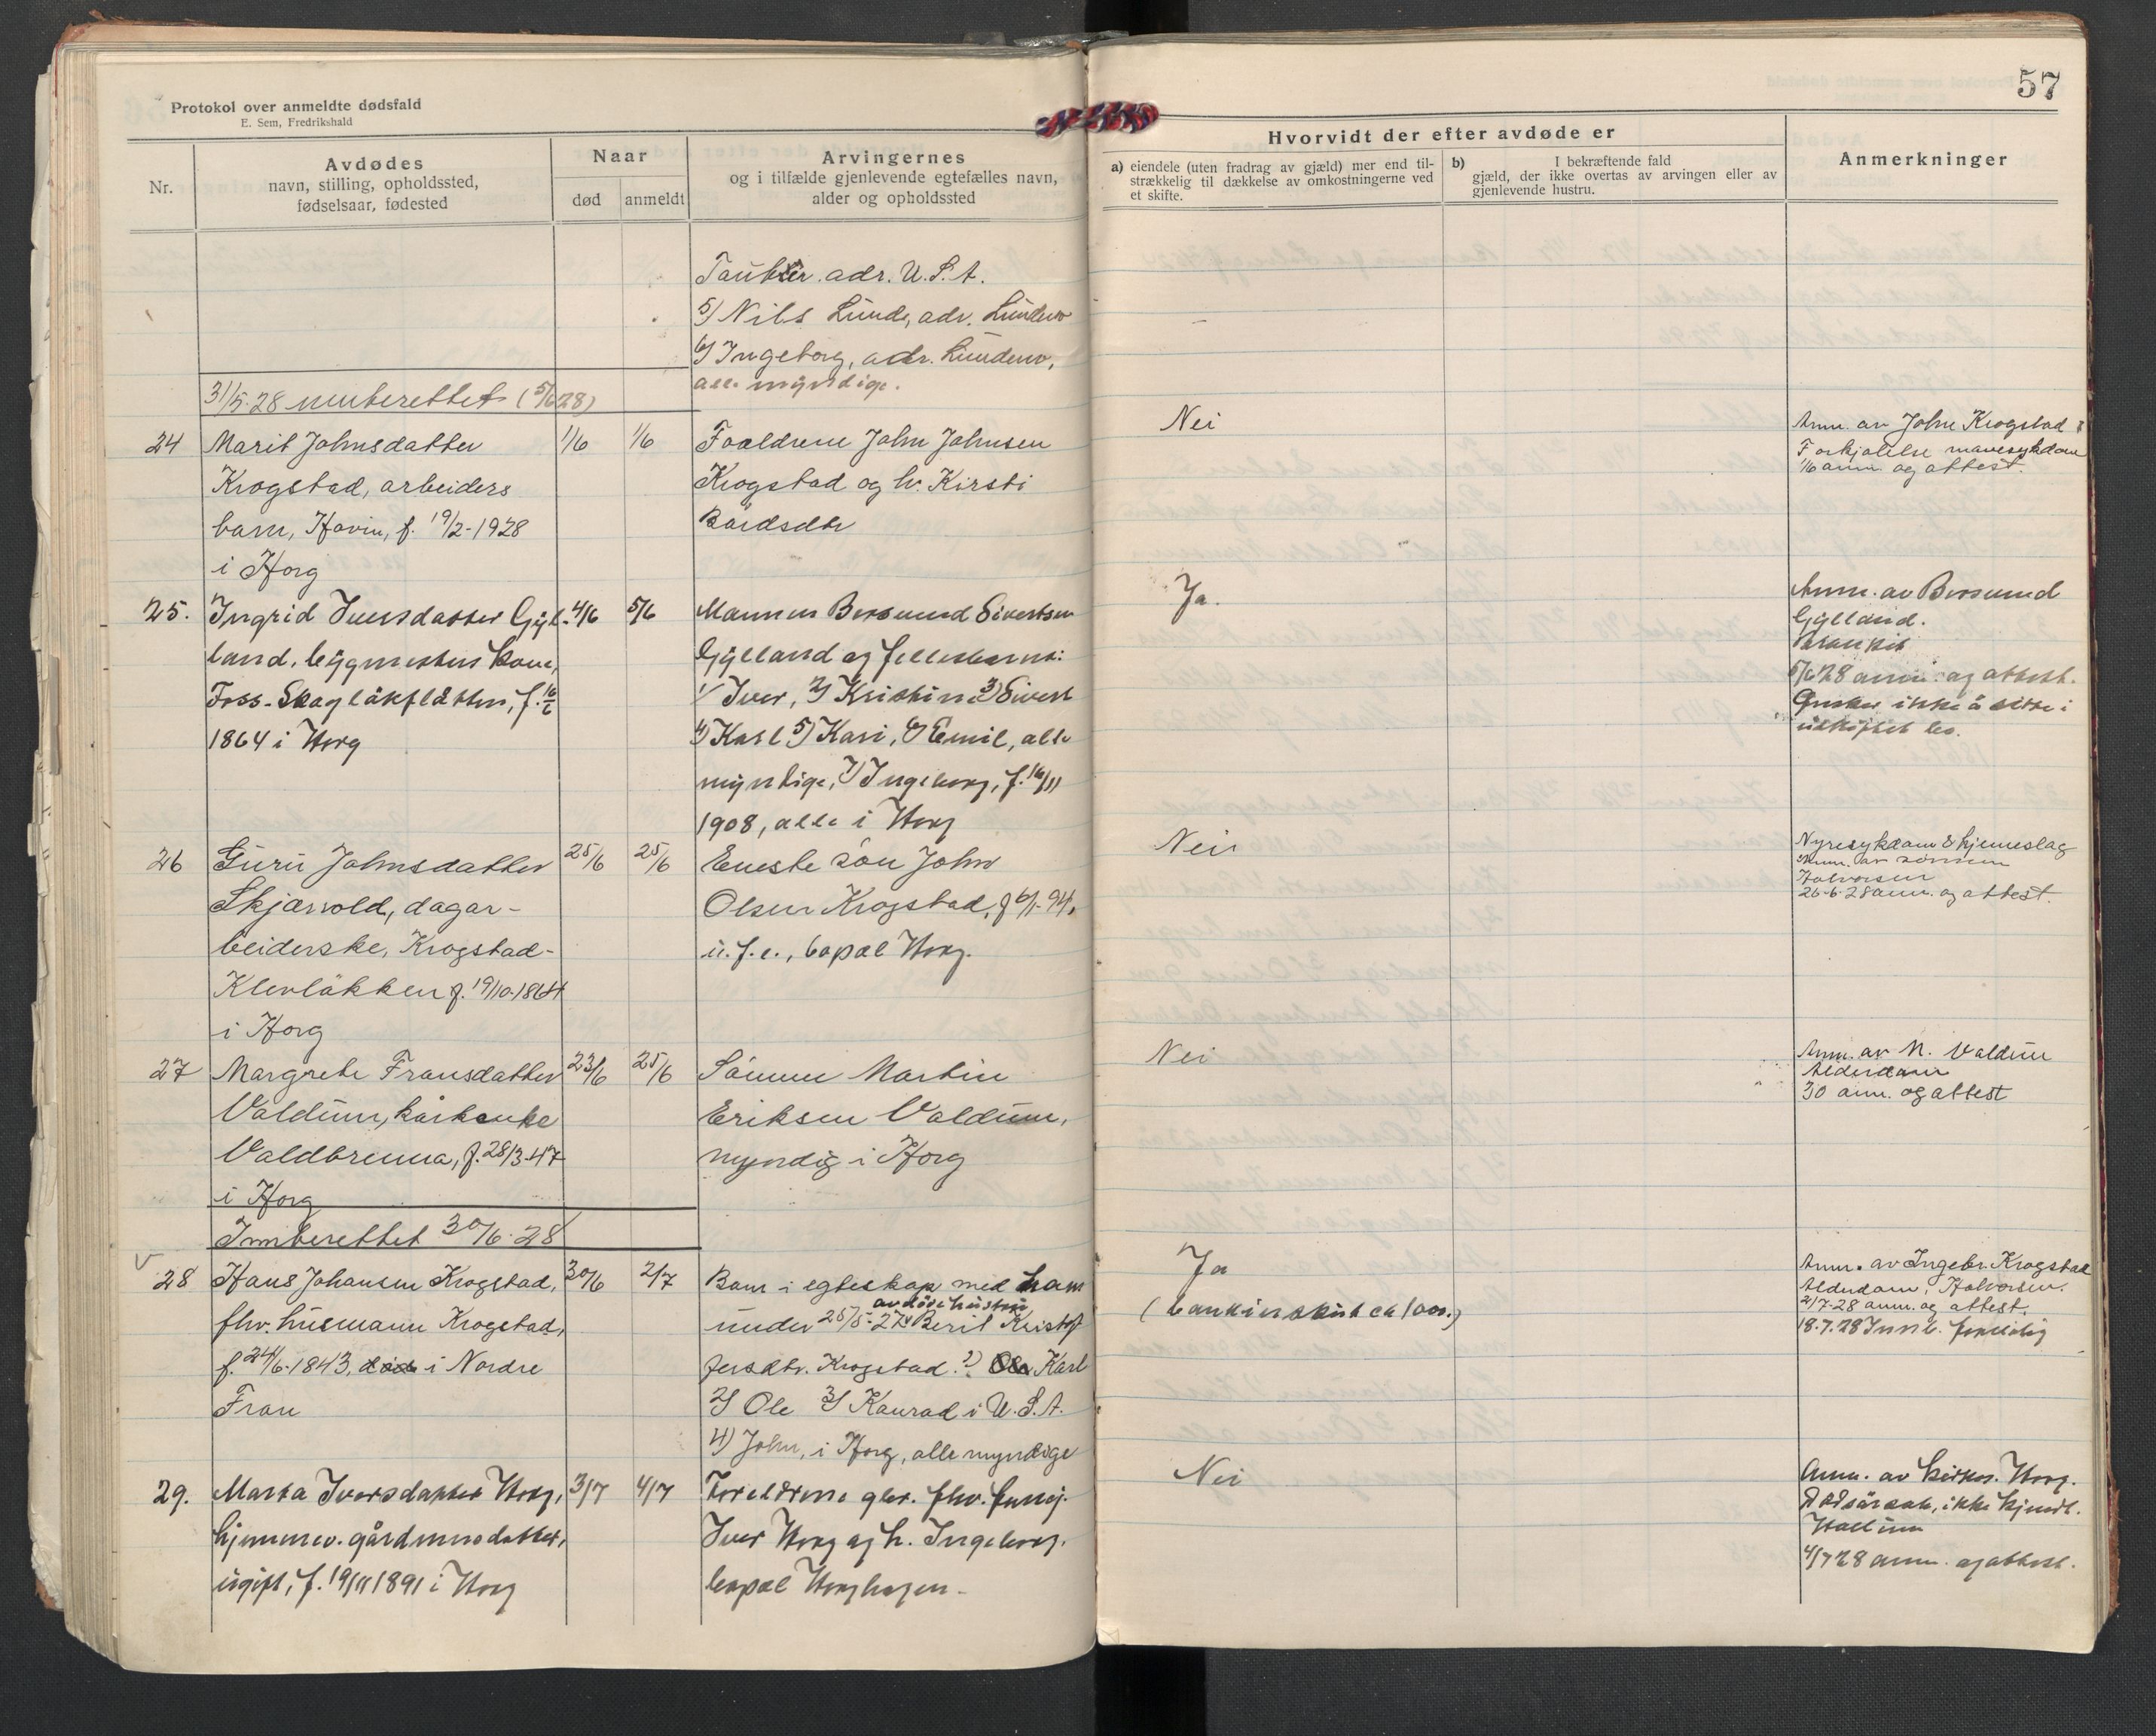 57
Protokol over anmeldte dødsfald
E. Sem, Fredrikshald
Nr.
Avdødes
navn, stilling, opholdssted,
fødselsaar, fødested
Naar
død
anmeldt
Arvingernes
og i tilfælde gjenlevende egtefælles navn,
alder og opholdssted
Hvorvidt der efter avdøde er
a) eiendele (uten fradrag av gjæld) mer end til-
strækkelig til dækkelse av omkostningerne ved
et skifte.
b) I bekræftende fald
gjæld, der ikke overtas av arvingen eller av
gjenlevende hustru.
Anmerkninger
adr. U.S.A.
5) Nils Lunde, adr. Lundemo
6) Ingeborg, adr. Lundemo,
alle myndige.
31/5-28 innberettet (5/6 28)
24
Marit Johnsdatter
Krogstad, arbeiders
barn, Hovin, f. 19/2-1928
i Horg
1/6
1/6
Foreldrene John Johnsen
Krogstad og h. Kirsti
Bårdsdtr
Nei
Anm. av John Krogstad
Forkjølelse mavesykdom
1/6 anm. og attest.
25.
Ingrid Iversdatter Gyl-
land, bygmesters kone,
Foss-Skogløkflåtten, f. 16/6
1864 i Horg
4/6
5/6
Mannen Bersvend Sivertsen
Gylland og fellesbarna:
1) Iver, 2) Kristine 3) Sivert
4) Karl 5) Kari, 6) Emil, alle
myndige, 7) Ingeborg, f. 16/11
1908, alle i Horg
Ja.
Anm. av Bersvend
Gylland.
5/6 28 anm. og attest.
Ønsker ikke å sitte i
uskiftet bo.
26
Guru Johnsdatter
Skjærvold, dagar-
beiderske, Krogstad-
Klevløkken f. 19/10-1864
i Horg
25/6
25/6
Eneste søn John
Olsen Krogstad, f 6/1-94,
u.f.e., bopæl Horg.
Nei
Nyresykdom & hjerneslag
Anm. av sønnen
Halvorsen
26-6-28 anm. og attest.
27
Margrete Fransdatter
Valdum, kårenke
Valdbrenna, f. 28/3-47
i Horg
23/6
25/6
Sønnen Martin
Eriksen Valdum,
myndig i Horg
Nei
Anm. av M. Valdum
Alderdom
30 anm. og attest
Innberettet 30/6-28
28
Hans Johansen Krogstad,
fhv. husmann Krogstad,
f. 24/6-1843, i Nordre
Fron
30/6
2/7
Barn i egteskap med ham
avdøde hustru
under 25/5-27 Berit Kristof
fersdtr. Krogstad: 1) Karl
2) Ole 3) Konrad i U.S.A.
4) John, i Horg, alle myndige
Ja
(bankinnskut ca 1000.)
Anm. av Ingebr. Krogstad
Alderdom, Halvorsen.
2/7-28 anm. og attest.
18.7.28 Innb.
29.
Marta Iversdatter Horg,
hjemmev. gårdmannsdatter,
ugift, f. 19/11 1891 i Horg
3/7
4/7
Foreldrene gbr. fhv.
Iver Horg og h. Ingeborg,
bopæl Horghagen.
Nei
Anm. av kirkes. Horg.
Dødsårsak, ikke kjendt.
4/7 28 anm. og attest.